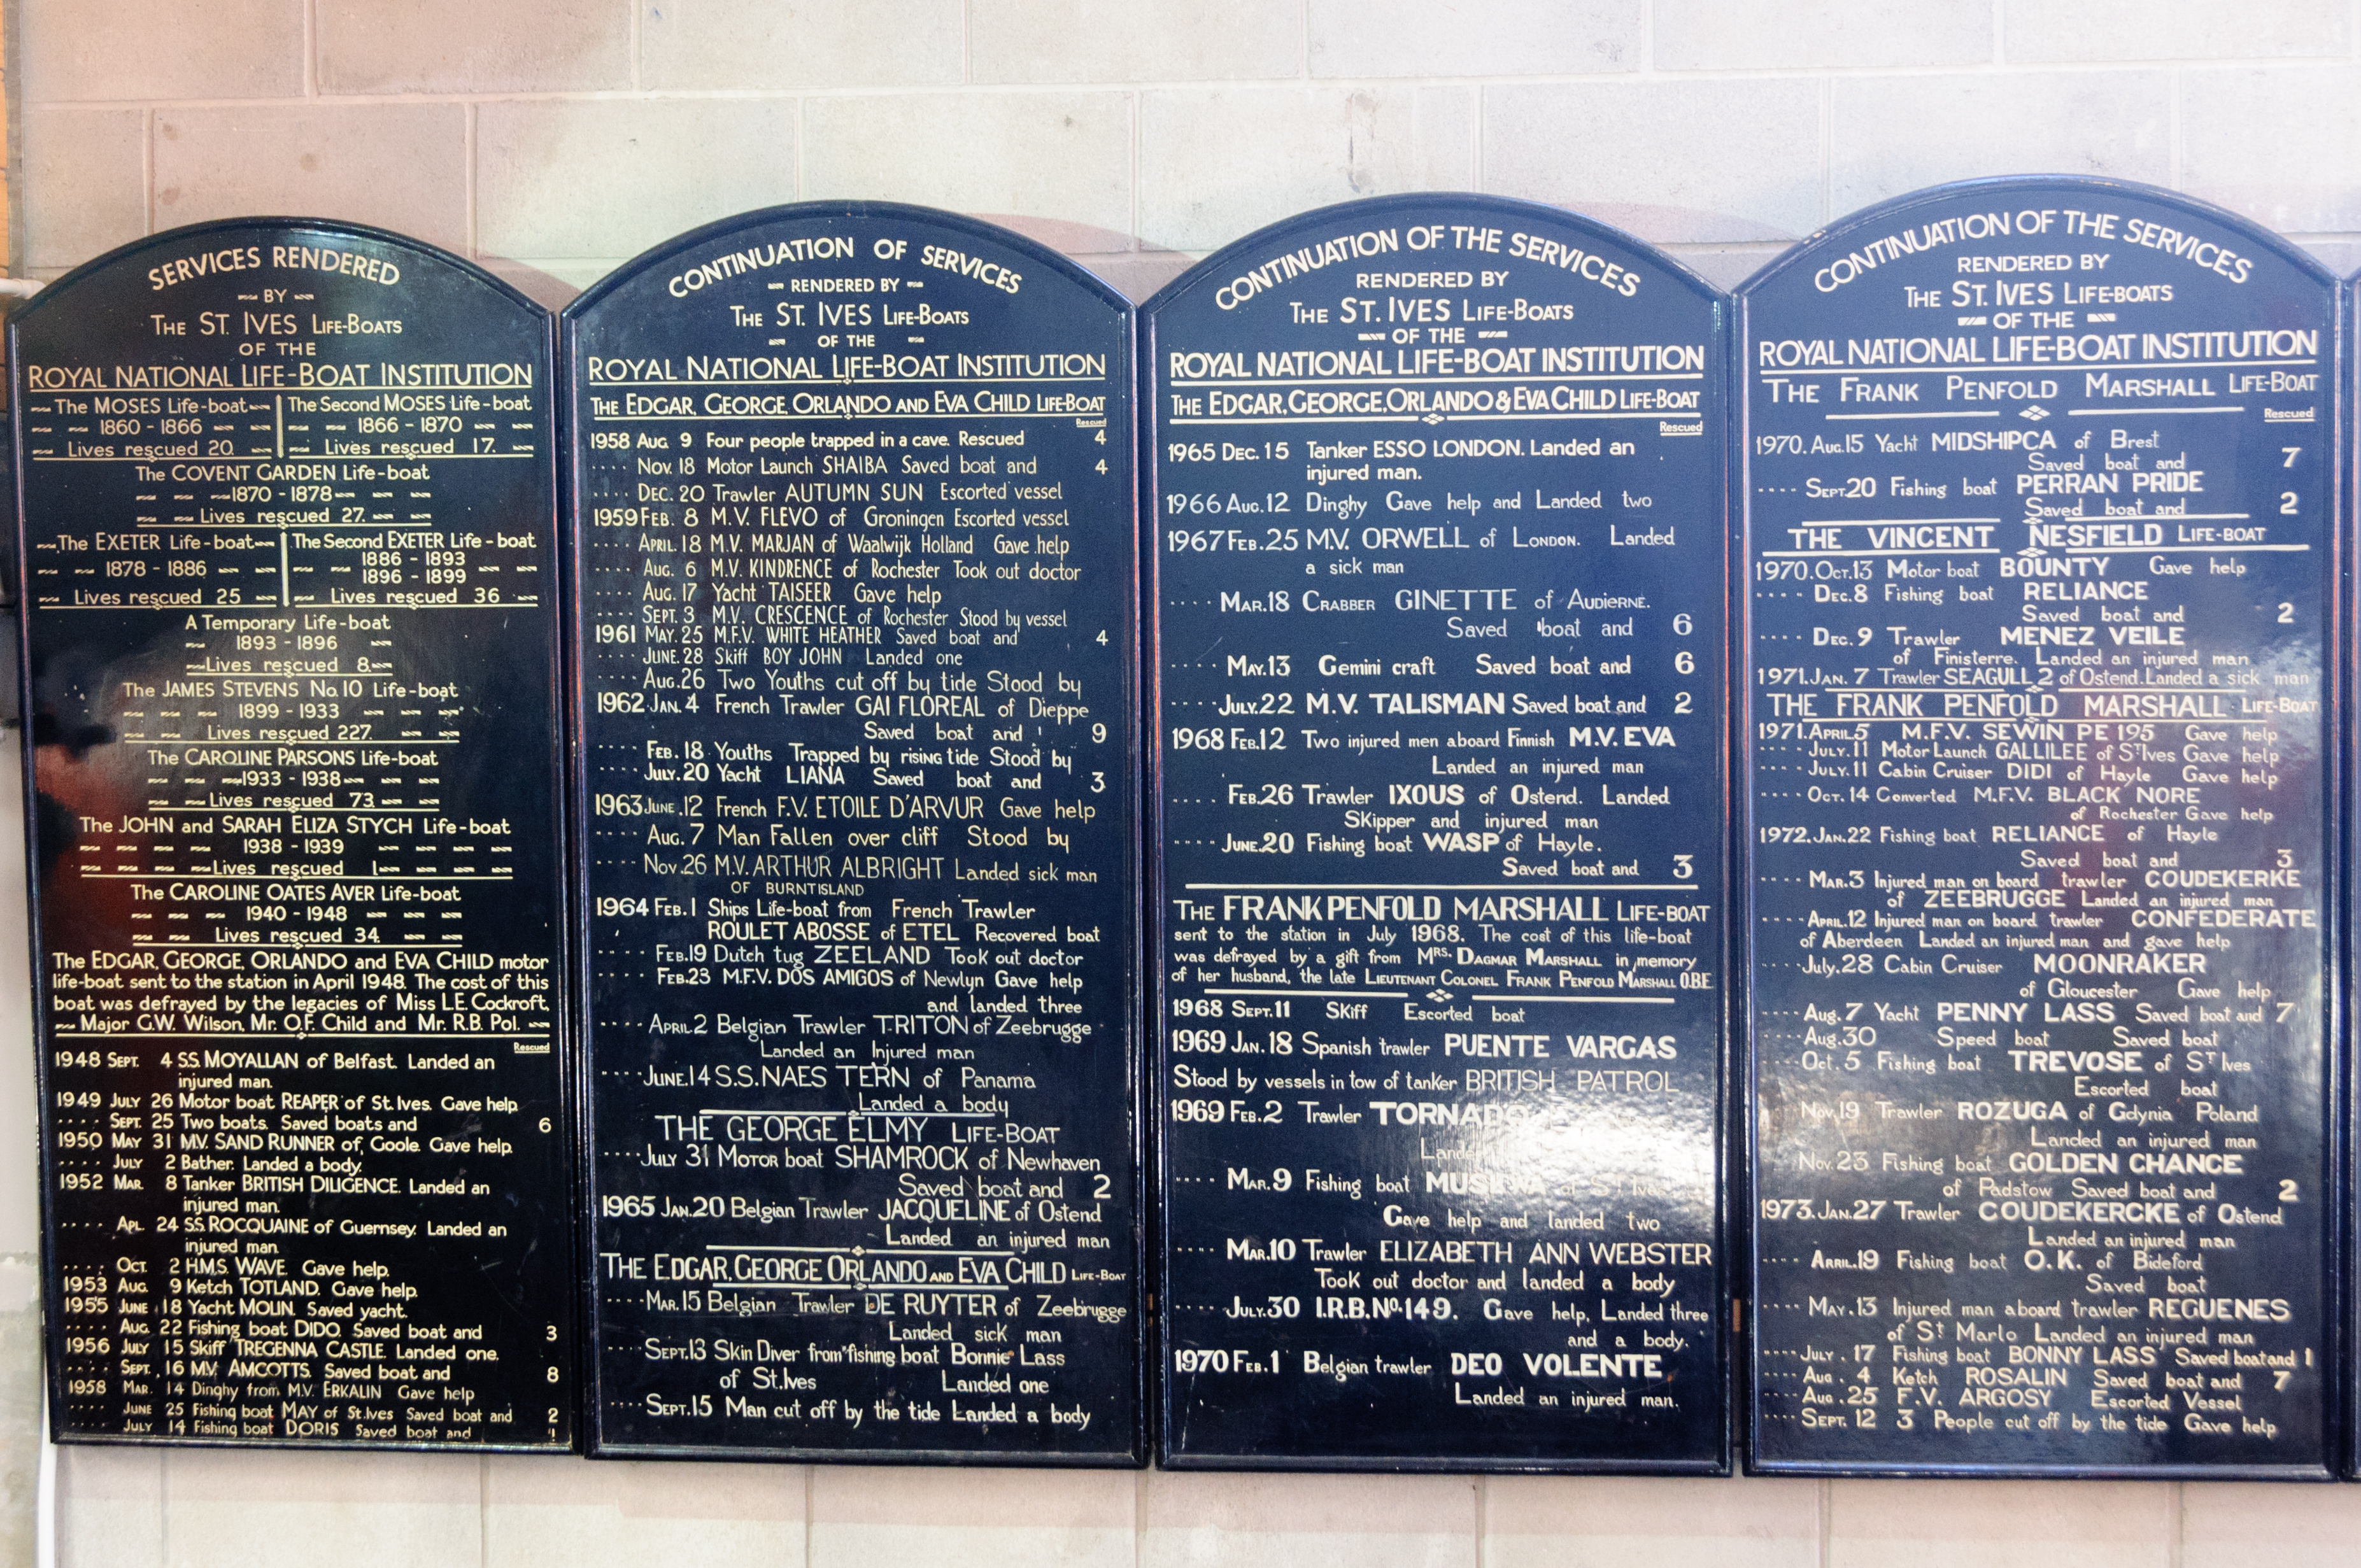 SERVICES RENDERED
BY
THE ST. IVES LIFE-BOATS
OF THE
ROYAL NATIONAL LIFE-BOAT INSTITUTION
The MOSES Life-boat
1860 - 1866
Lives rescued 20.
The Second MOSES Life-boat
1866 - 1870
Lives rescued 17.
The COVENT GARDEN Life-boat
1870 - 1878
Lives rescued 27.
The EXETER Life-boat
1878 - 1886
Lives rescued 25
The Second EXETER Life-boat
1886 - 1893
1896 - 1899
Lives rescued 36
A Temporary Life-boat
1893 - 1896
Lives rescued 8.
The JAMES STEVENS No. 10 Life-boat
1899 - 1933
Lives rescued 227.
The CAROLINE PARSONS Life-boat
1933 - 1938
Lives rescued 73.
The JOHN and SARAH ELIZA STYCH Life-boat
1938 - 1939
Lives rescued 1
The CAROLINE OATES AVER Life-boat
1940 - 1948
Lives rescued 34.
The EDGAR, GEORGE, ORLANDO and EVA CHILD motor
life-boat sent to the station in April 1948. The cost of this
boat was defrayed by the legacies of Miss L.E. Cockroft,
Major G.W. Wilson, Mr. O.F. Child and Mr. R.B. Pol.
Rescued
1948 SEPT. 4 S.S. MOYALLAN of Belfast. Landed an
injured man.
1949 JULY 26 Motor boat REAPER of St. Ives. Gave help.
.... SEPT. 25 Two boats. Saved boats and 6
1950 MAY 31 M.V. SAND RUNNER of Goole. Gave help.
.... JULY 2 Bather. Landed a body.
1952 MAR. 8 Tanker BRITISH DILIGENCE. Landed an
injured man.
.... APL. 24 S.S. ROCQUAINE of Guernsey. Landed an
injured man
.... OCT. 2 H.M.S. WAVE. Gave help.
1953 AUG. 9 Ketch TOTLAND. Gave help.
1955 JUNE 18 Yacht MOLIN. Saved yacht.
.... AUG. 22 Fishing boat DIDO. Saved boat and 3
1956 JULY 15 Skiff TREGENNA CASTLE. Landed one.
.... SEPT. 16 M.V. AMCOTTS. Saved boat and 8
1958 MAR. 14 Dinghy from M.V. ERKALIN Gave help
.... JUNE 25 Fishing boat MAY of St. Ives Saved boat and 2
.... JULY 14 Fishing boat DORIS Saved boat and
CONTINUATION OF SERVICES
RENDERED BY
THE ST. IVES LIFE-BOATS
OF THE
ROYAL NATIONAL LIFE-BOAT INSTITUTION
THE EDGAR, GEORGE, ORLANDO AND EVA CHILD LIFE-BOAT
Rescued
1958 AUG. 9 Four people trapped in a cave. Rescued 4
.... NOV. 18 Motor Launch SHAIBA Saved boat and 4
.... DEC. 20 Trawler AUTUMN SUN Escorted vessel
1959 FEB. 8 M.V. FLEVO of Groningen Escorted vessel
.... APRIL. 18 M.V. MARJAN of Waalwijk Holland Gave help
.... AUG. 6 M.V. KINDRENCE of Rochester Took out doctor
.... AUG. 17 Yacht TAISEER Gave help
.... SEPT. 3 M.V. CRESCENCE of Rochester Stood by vessel
1961 MAY. 25 M.F.V. WHITE HEATHER Saved boat and 4
.... JUNE. 28 Skiff BOY JOHN Landed one
.... AUG. 26 Two Youths cut off by tide Stood by
1962 JAN. 4 French Trawler GAI FLOREAL of Dieppe
Saved boat and 9
.... FEB. 18 Youths Trapped by rising tide Stood by
.... JULY. 20 Yacht LIANA Saved boat and 3
1963 JUNE. 12 French F.V. ETOILE D'ARVUR Gave help
.... AUG. 7 Man Fallen over cliff Stood by
.... NOV. 26 M.V. ARTHUR ALBRIGHT Landed sick man
OF BURNTISLAND
1964 FEB. 1 Ships Life-boat from French Trawler
ROULET ABOSSE of ETEL Recovered boat
.... FEB. 19 Dutch tug ZEELAND Took out doctor
.... FEB. 23 M.F.V. DOS AMIGOS of Newlyn Gave help
and landed three
.... APRIL 2 Belgian Trawler TRITON of Zeebrugge
Landed an Injured man
.... JUNE. 14 S.S. NAES TERN of Panama
Landed a body
THE GEORGE ELMY LIFE-BOAT
.... JULY 31 MOTOR boat SHAMROCK of Newhaven
Saved boat and 2
1965 JAN. 20 Belgian Trawler JACQUELINE of Ostend
Landed an injured man
THE EDGAR, GEORGE ORLANDO AND EVA CHILD LIFE-BOAT
.... MAR. 15 Belgian Trawler DE RUYTER of Zeebrugge
Landed sick man
.... SEPT. 13 Skin Diver from fishing boat Bonnie Lass
of St. Ives Landed one
.... SEPT. 15 Man cut off by the tide Landed a body
CONTINUATION OF THE SERVICES
RENDERED BY
THE ST. IVES LIFE-BOATS
OF THE
ROYAL NATIONAL LIFE-BOAT INSTITUTION
THE EDGAR, GEORGE, ORLANDO & EVA CHILD LIFE-BOAT
Rescued
1965 DEC. 15 Tanker ESSO LONDON. Landed an
injured man.
1966 AUG. 12 Dinghy Gave help and Landed two
1967 FEB. 25 M.V. ORWELL of LONDON. Landed
a sick man
.... MAR. 18 CRABBER GINETTE of AUDIERNE.
Saved boat and 6
.... MAY. 13 Gemini craft Saved boat and 6
.... JULY. 22 M.V. TALISMAN Saved boat and 2
1968 FEB. 12 Two injured men aboard Finnish M.V. EVA
Landed an injured man
.... FEB. 26 Trawler IXOUS of Ostend. Landed
SKipper and injured man
.... JUNE. 20 Fishing boat WASP of Hayle.
Saved boat and 3
THE FRANK PENFOLD MARSHALL LIFE-BOAT
sent to the station in July 1968. The cost of this life-boat
was defrayed by a gift from MRS. DAGMAR MARSHALL in memory
of her husband, the late LIEUTENANT COLONEL FRANK PENFOLD MARSHALL O.B.E.
1968 SEPT. 11 SKiff Escorted boat
1969 JAN. 18 Spanish trawler PUENTE VARGAS
Stood by vessels in tow of tanker BRITISH PATROL
1969 FEB. 2 Trawler TORNADO
.... MAR. 9 Fishing boat
Gave help and landed two
.... MAR. 10 Trawler ELIZABETH ANN WEBSTER
TooK out doctor and landed a body
.... JULY. 30 I.R.B. No. 149. Gave help, Landed three
and a body.
1970 FEB. 1 Belgian trawler DEO VOLENTE
Landed an injured man.
CONTINUATION OF THE SERVICES
RENDERED BY
THE ST. IVES LIFE-BOATS
OF THE
ROYAL NATIONAL LIFE-BOAT INSTITUTION
THE FRANK PENFOLD MARSHALL LIFE-BOAT
Rescued
1970. AUG. 15 Yacht MIDSHIPCA of Brest
Saved boat and 7
.... SEPT. 20 Fishing boat PERRAN PRIDE
Saved boat and 2
THE VINCENT NESFIELD LIFE-BOAT
1970. OCT. 13 Motor boat BOUNTY Gave help
.... DEC. 8 Fishing boat RELIANCE
Saved boat and 2
.... DEC. 9 Trawler MENEZ VEILE
of Finisterre. Landed an injured man
1971. JAN. 7 Trawler SEAGULL 2 of Ostend. Landed a sick man
THE FRANK PENFOLD MARSHALL LIFE-BOAT
1971. APRIL 5 M.F.V. SEWIN PE 195 Gave help
.... JULY. 11 Motor Launch GALLILEE of St Ives Gave help
.... JULY. 11 Cabin Cruiser DIDI of Hayle Gave help
.... OCT. 14 Converted M.F.V. BLACK NORE
of Rochester Gave help
1972. JAN. 22 Fishing boat RELIANCE of Hayle
Saved boat and 3
.... MAR. 3 Injured man on board trawler COUDEKERKE
of ZEEBRUGGE Landed an injured man
.... APRIL. 12 Injured man on board trawler CONFEDERATE
of Aberdeen Landed an injured man and gave help
.... July. 28 Cabin Cruiser MOONRAKER
of Gloucester Gave help
.... Aug. 7 Yacht PENNY LASS Saved boat and 7
.... Aug. 30 Speed boat Saved boat
.... Oct. 5 Fishing boat TREVOSE of St Ives
Escorted boat
.... Nov. 19 Trawler ROZUGA of Gdynia Poland
Landed an injured man
Nov. 23 Fishing boat GOLDEN CHANCE
of Padstow Saved boat and 2
1973. JAN. 27 Trawler COUDEKERCKE of Ostend
Landed an injured man
.... ARRIL. 19 Fishing boat O.K. of Bideford
Saved boat
.... MAY. 13 Injured man aboard trawler REGUENES
of St Marlo Landed an injured man
.... JULY. 17 Fishing boat BONNY LASS Saved boat and 1
.... AUG. 4 Ketch ROSALIN Saved boat and 7
.... AUG. 25 F.V. ARGOSY Escorted Vessel
.... SEPT. 12 3 People cut off by the tide Gave help